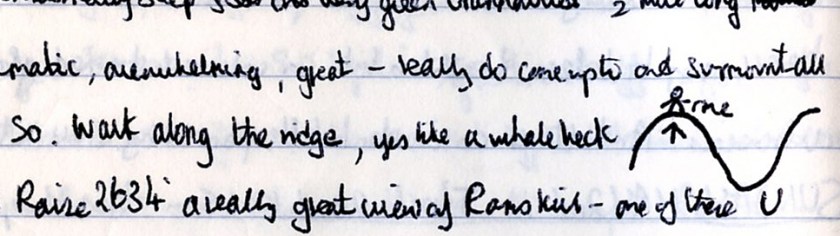 steep
2 mile long
matic, overwhelming, great - really do come up to and surmount all
me
So. Walk along the ridge, yes like a whale back
Raise 2634' a really great view of Rams - one of these U